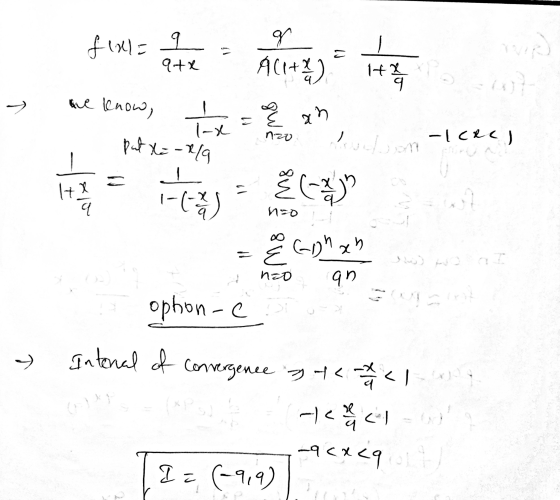 f(x) = 9/(9+x) = 9/(9(1+x/9)) = 1/(1+x/9)
→ we know, 1/(1-x) = ∑_{n=0}^{∞} x^n , -1<x<1
Put x = -x/9
1/(1+x/9) = 1/(1-(-x/9)) = ∑_{n=0}^{∞} (-x/9)^n
= ∑_{n=0}^{∞} (-1)^n x^n / 9^n
option - C
→ Interval of convergence ⇒ -1 < -x/9 < 1
-1 < x/9 < 1
-9 < x < 9
I = (-9,9)